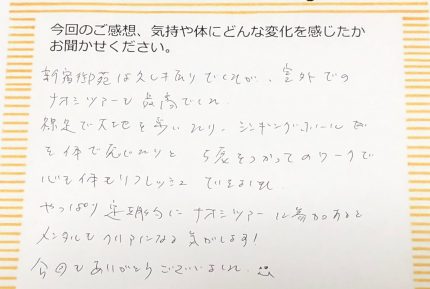 今回のご感想、気持や体にどんな変化を感じたか
お聞かせください。
新宿御苑は久し振りでしたが、室外での
ナオミツアーも最高でした
裸足で大地を歩いたり、シンギングボール
を体で感じたりと 5感をつかってのワークで
心も体もリフレッシュ できました
やっぱり定期的にナオミツアーに参加すると
メンタルもクリアになる気がします!
今回もありがとうございました